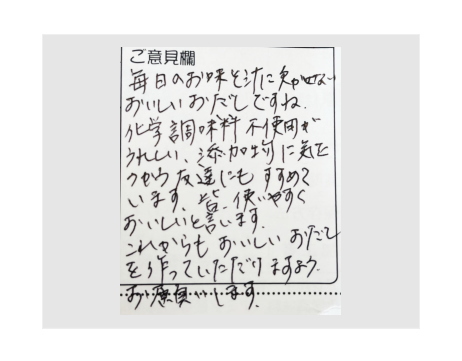 ご意見欄
毎日のお味そ汁に欠かせない
おいしいおだしですね。
化学調味料不使用が
うれしい、添加物に気を
つかう友達にもすすめて
います。皆、使いやすく
おいしいと言います。
これからもおいしいおだし
を作っていただけますよう
お願い します。